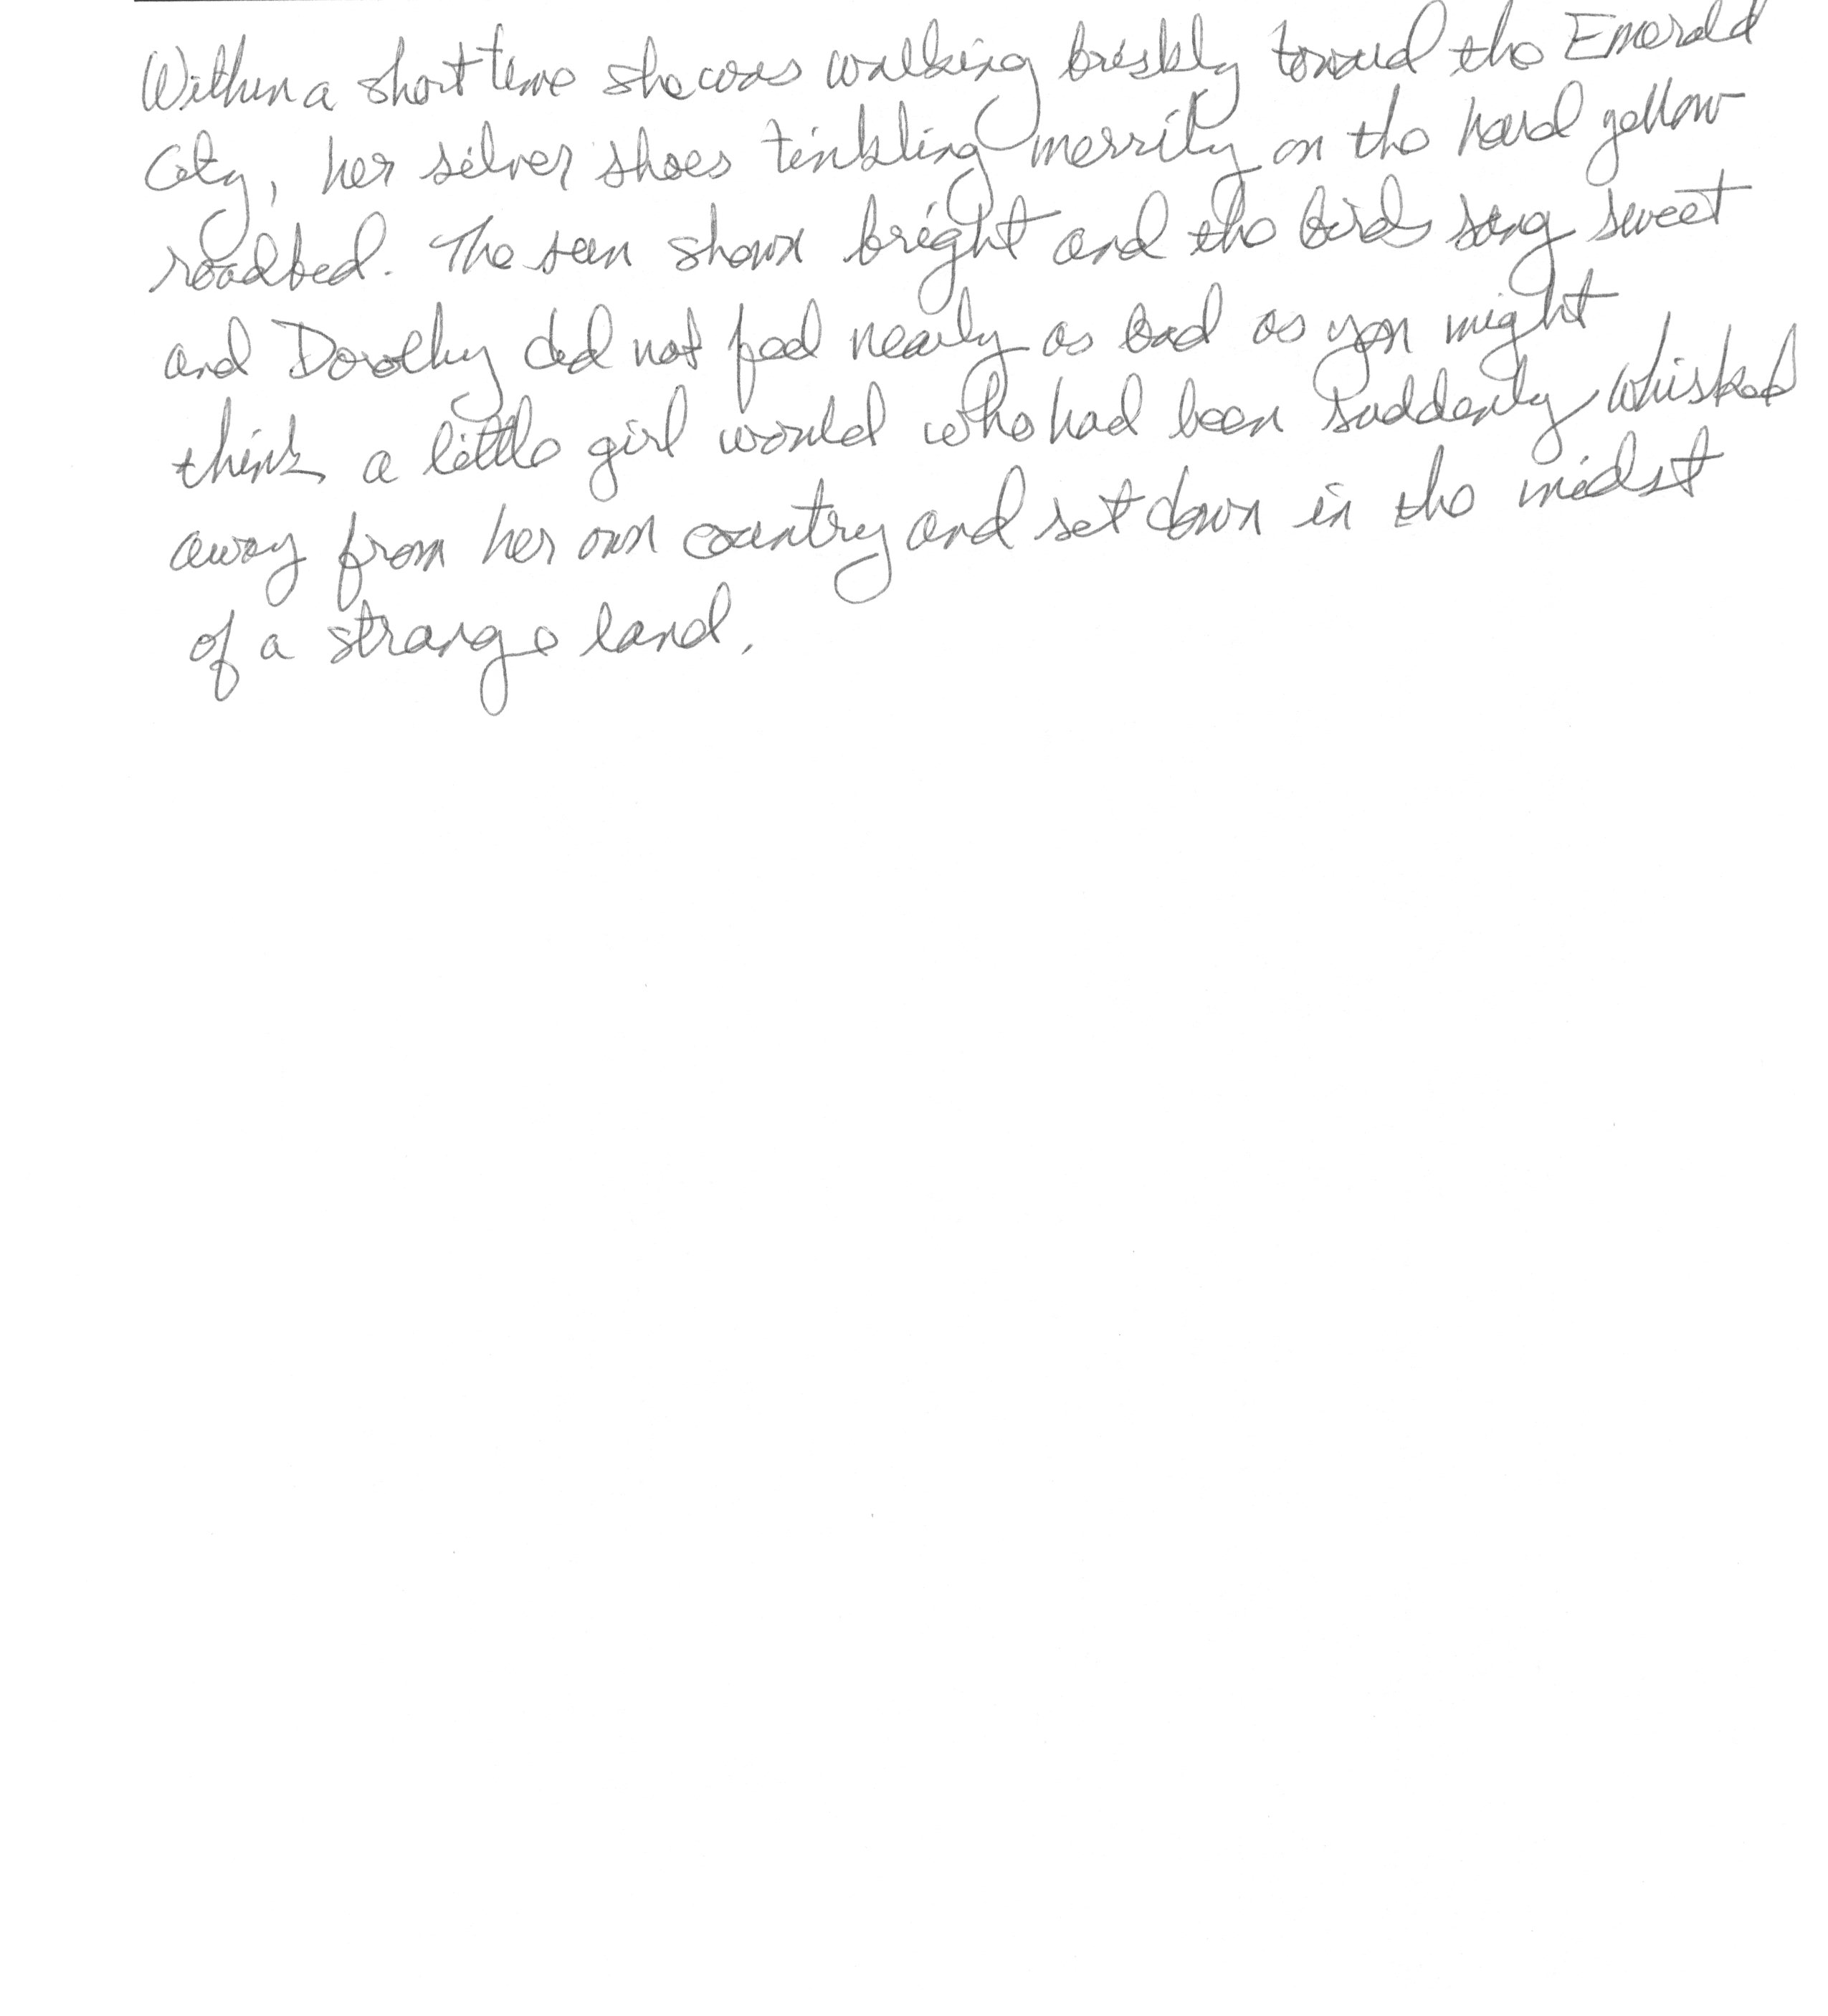 Within a short time she was walking briskly toward the Emerald
City, her silver shoes tinkling merrily on the hard yellow
roadbed. The sun shown bright and the birds sang sweet
and Dorothy did not feel nearly as bad as you might
think a little girl would who had been suddenly whisked
away from her own country and set down in the midst
of a strange land.